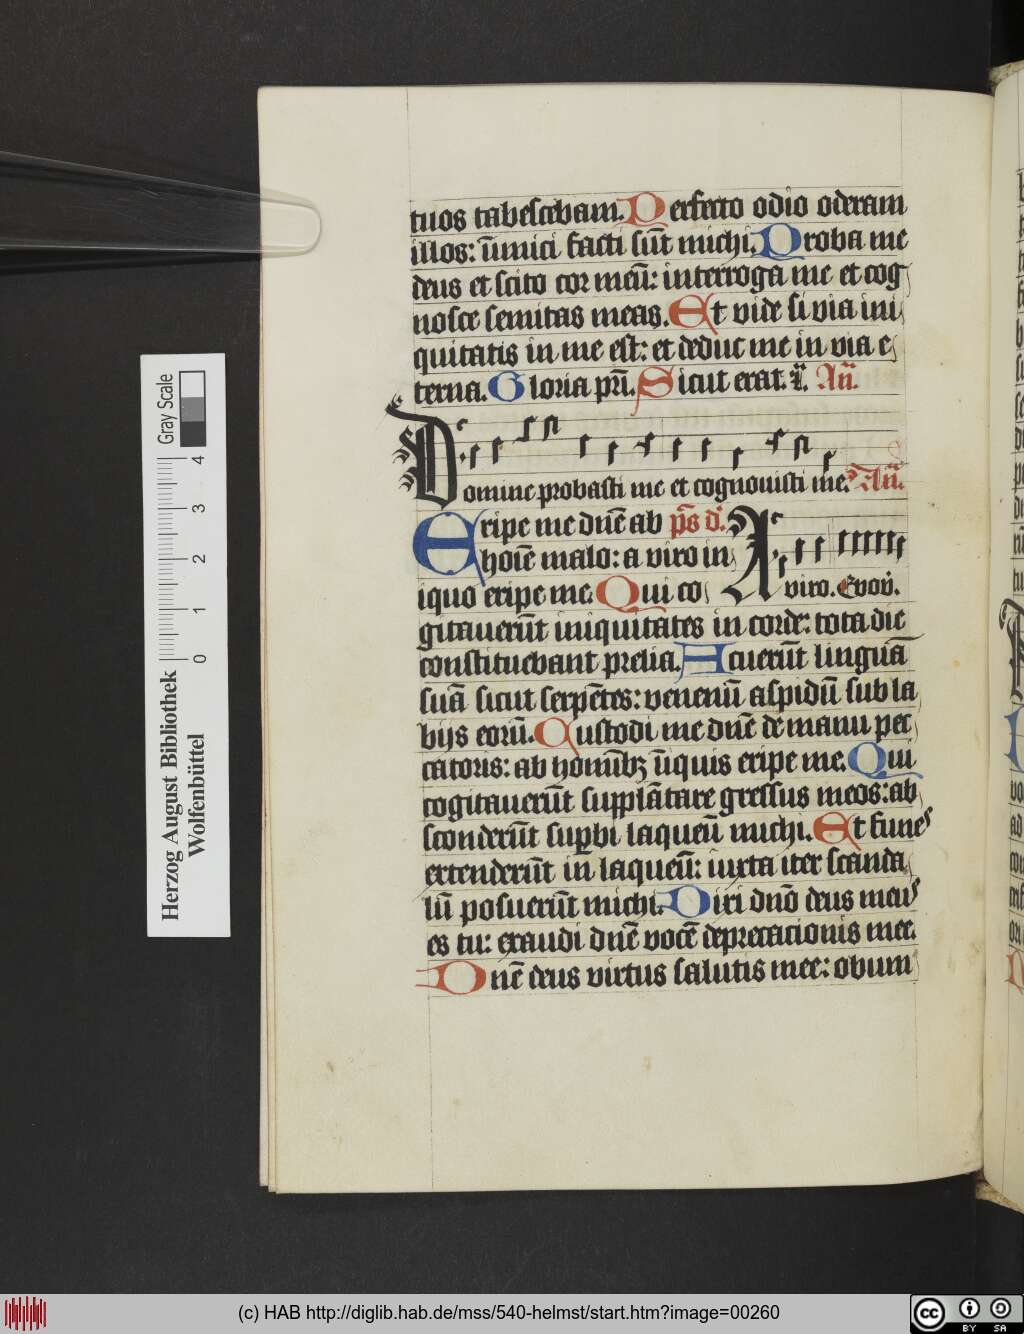 tuos tabescebam. Perfecto odio oderam
illos: inimici facti sūt michi. Proba me
deus et scito cor meū: interroga me et cog
nosce semitas meas. Et vide si via ini
quitatis in me est: et deduc me in via e
terna. Gloria pr̄i. Sicut erat. Añ.
Domine probasti me et cognouisti me. Añ.
Eripe me dn̄e ab p̄s d'.
hoīe malo: a viro in
iquo eripe me. Qui co
A viro. Euou.
gitauerūt iniquitates in corde: tota die
constituebant prelia. Acuerūt linguā
suā sicut serpētes: venenū aspidū sub la
bijs eorū. Custodi me dn̄e de manu pec
catoris: ab homībꝫ īiquis eripe me. Qui
cogitauerūt supplātare gressus meos: ab
sconderūt sup̄bi laqueū michi. Et funes
extenderūt in laqueū: iuxta iter scanda
lū posuerūt michi. Dixi dn̄o deus meus
es tu: exaudi dn̄e vocē deprecacionis mee.
Dn̄e deus virtus salutis mee: obum
Gray Scale
0 1 2 3 4
Herzog August Bibliothek
Wolfenbüttel
(c) HAB http://diglib.hab.de/mss/540-helmst/start.htm?image=00260
cc BY SA